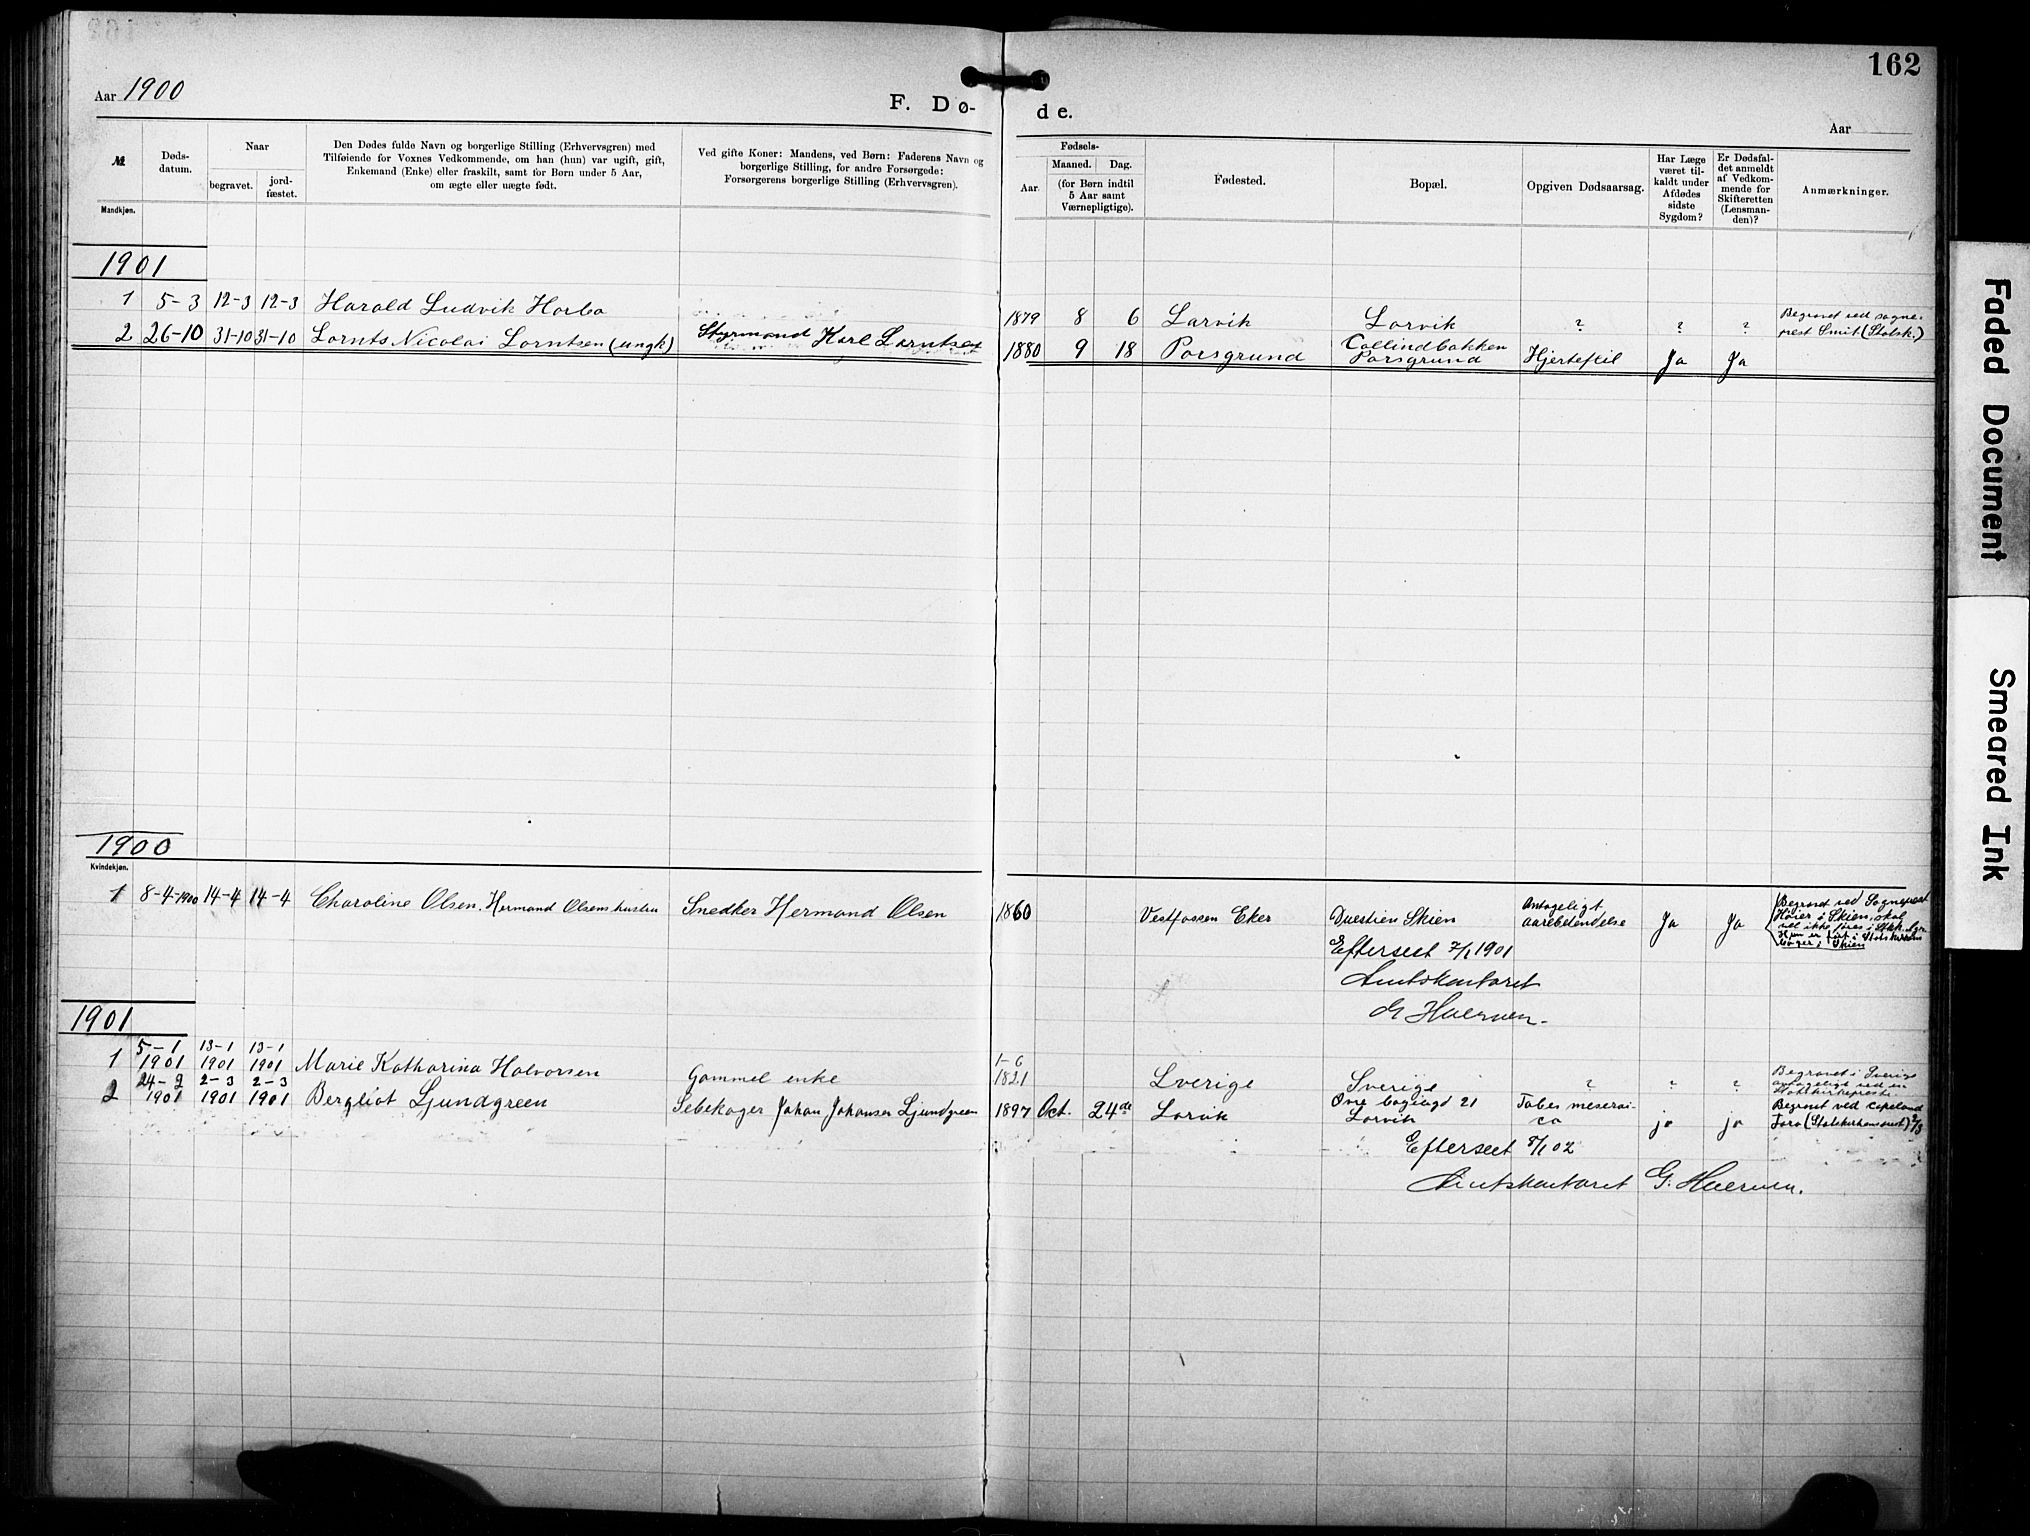 162
Aar 1900
F. Dø- de.
Aar
№
Døds-
datum.
Naar
begravet.
jord-
fæstet.
Den Dødes fulde Navn og borgerlige Stilling (Erhvervsgren) med
Tilføiende for Voxnes Vedkommende, om han (hun) var ugift, gift,
Enkemand (Enke) eller fraskilt, samt for Børn under 5 Aar,
om ægte eller uægte født.
Ved gifte Koner: Mandens, ved Børn: Faderens Navn og
borgerlige Stilling, for andre Forsørgede:
Forsørgerens borgerlige Stilling (Erhvervsgren).
Fødsels-
Aar.
Maaned.
Dag.
(for Børn indtil
5 Aar samt
Værnepligtige).
Fødested.
Bopæl.
Opgiven Dødsaarsag.
Har Læge
været til-
kaldt under
Afdødes
sidste
Sygdom?
Er Dødsfal-
det anmeldt
af Vedkom-
mende for
Skifteretten
(Lensman-
den)?
Anmærkninger.
Mandkjøn.
1901
1 5-3 12-3 12-3 Harald Ludvik Horbo 1879 8 6 Larvik Larvik ? ? ? Begravet ved sogne-
prest Smit (Stolsk.)
2 26-10 31-10 31-10 Lornts Nicolai Lorntsen (ungk) Styrmand Karl Lorntsen 1880 9 18 Porsgrund Collindbakken
Porsgrund Hjertefeil Ja Ja
1900
Kvindekjøn.
1 8-4-1900 14-4 14-4 Charoline Olsen. Hermand Olsens hustru Snedker Hermand Olsen 1860 Vestfossen Eker Duestien Skien Antageligt
aarebetendelse Ja Ja Begravet ved Sogneprest
Høier i Skien, skal
vel ikke føres i
Hun er ført i
bøger, Skien
Eftersest 7/1 1901
Amtskontoret
G Huerven.
1901
1 5-1
1901 13-1
1901 13-1
1901 Marie Katharina Halvorsen Gammel enke 1-6
1821 Sverige Sverige ? ? ? Begravet i Sverige
antageligt ved en
Statskirkeprest
2 24-2
1901 2-3
1901 2-3
1901 Bergliot Ljundgreen Sebekoger Johan Johansen Ljundgreen 1897 Oct. 24de Larvik Øvre bogt 21
Larvik Tabes meserai-
ca ja ja Begravet ved Capeland
(Statskirkens prest) 2/3
Efterseet 8/1 02
Amtskontoret G. Huerven.
Faded Document
Smeared Ink